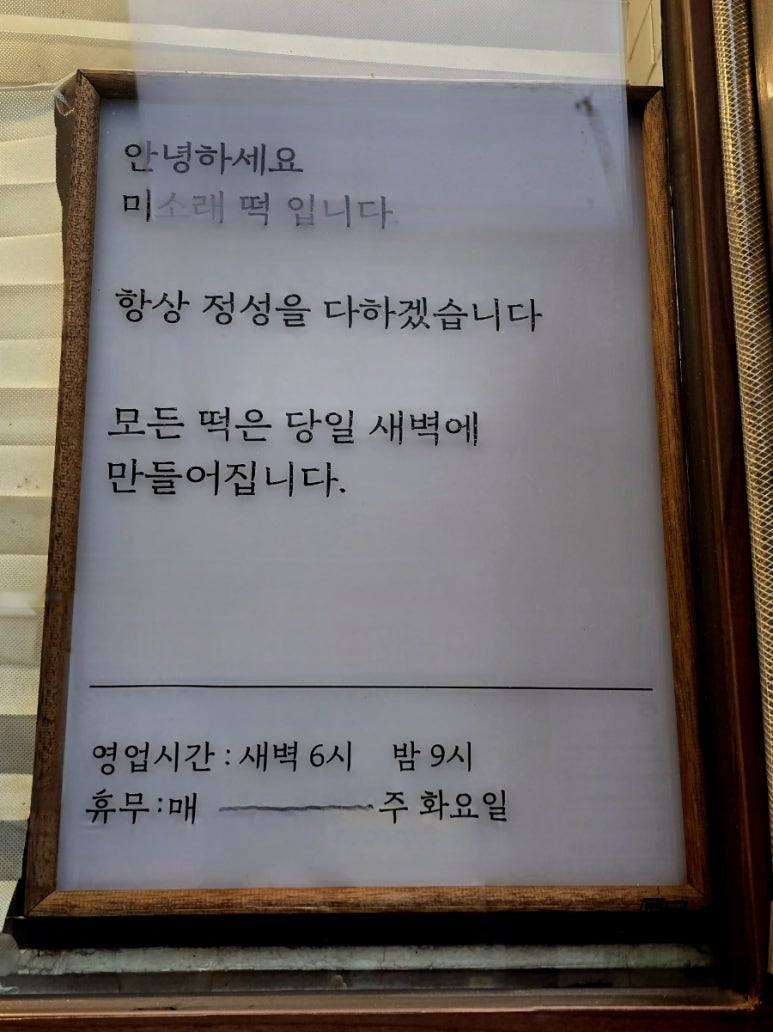 안녕하세요
미소래 떡 입니다.
항상 정성을 다하겠습니다
모든 떡은 당일 새벽에
만들어집니다.
영업시간 : 새벽 6시 밤 9시
휴무:매 주 화요일